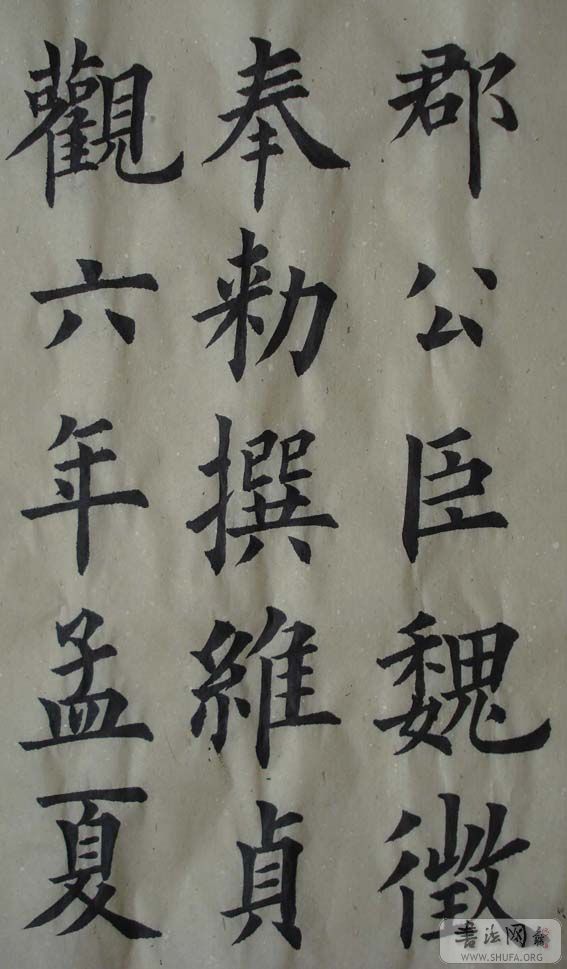 郡公臣魏徵
奉勑撰維貞
觀六年孟夏
书法网
WWW.SHUFA.ORG